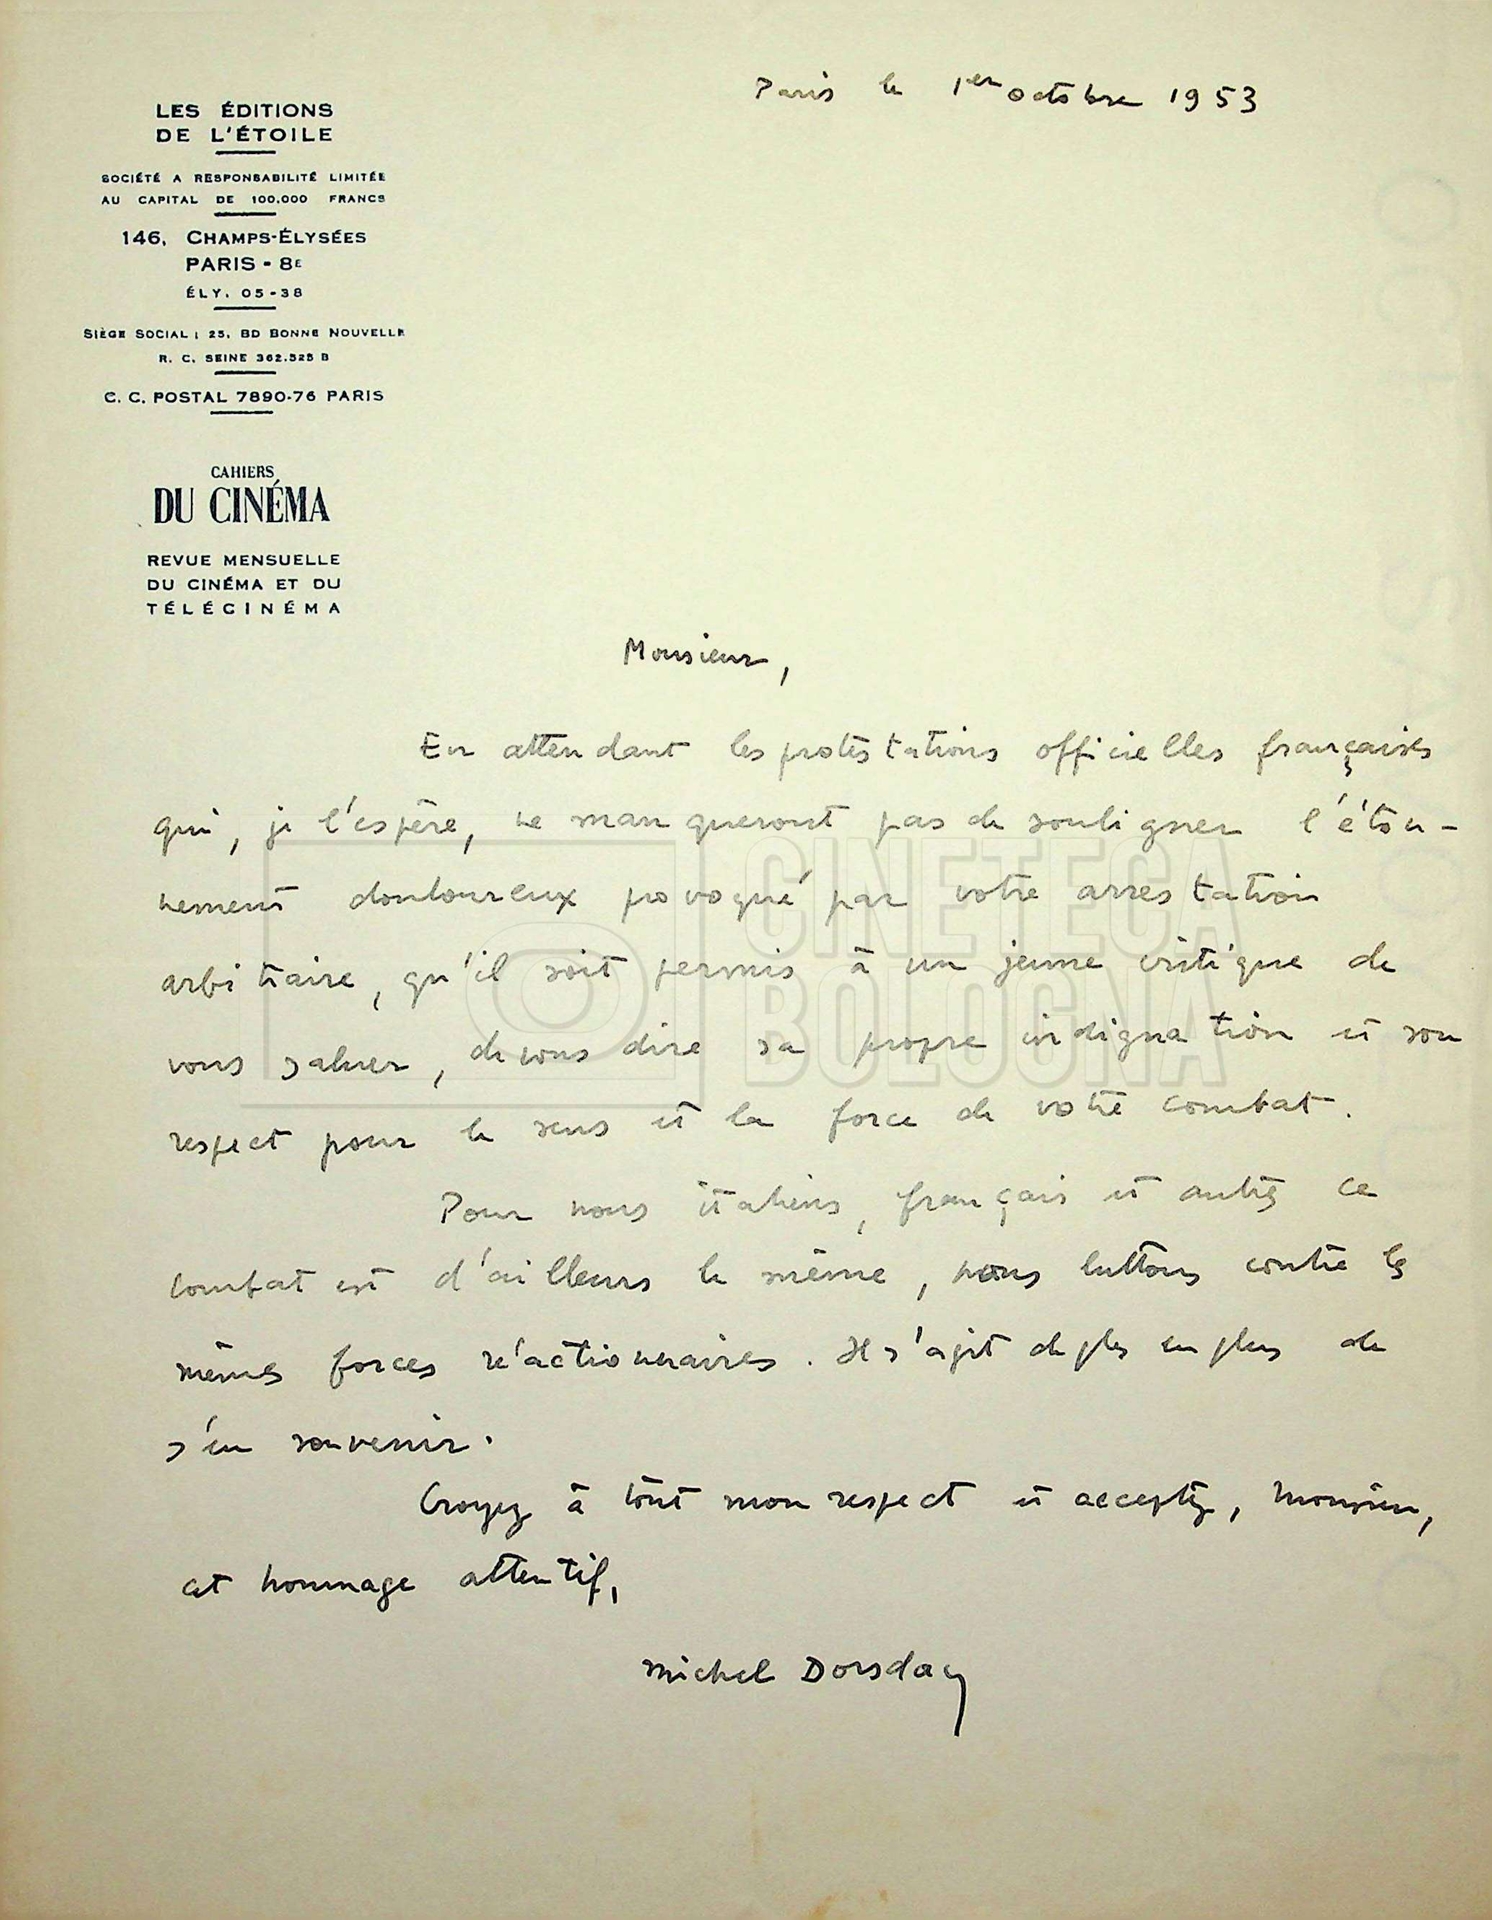 Paris le 1er octobre 1953
LES ÉDITIONS
DE L'ÉTOILE
SOCIÉTÉ A RESPONSABILITÉ LIMITÉE
AU CAPITAL DE 100.000 FRANCS
146, CHAMPS-ÉLYSÉES
PARIS - 8E
ÉLY. 05-38
SIÈGE SOCIAL : 25, BD BONNE NOUVELLE
R. C. SEINE 362.525 B
C. C. POSTAL 7890-76 PARIS
CAHIERS
DU CINÉMA
REVUE MENSUELLE
DU CINÉMA ET DU
TÉLÉCINÉMA
Monsieur,
En attendant les protestations officielles françaises
qui, je l'espère, ne manqueront pas de souligner l'éton-
nement douloureux povoqué par votre arrestation
arbitraire, qu'il soit permis à un jeune critique de
vous saluer, de vous dire sa propre indignation et son
respect pour le sens et la force de votre combat.
Pour nous italiens, français et autres ce
combat est d'ailleurs le même, nous luttons contre les
mêmes forces réactionnaires. Il s'agit de plus en plus de
s'en souvenir.
Croyez à tout mon respect et acceptez, Monsieur,
cet hommage attentif,
Michel Dorsday
CINETECA
BOLOGNA